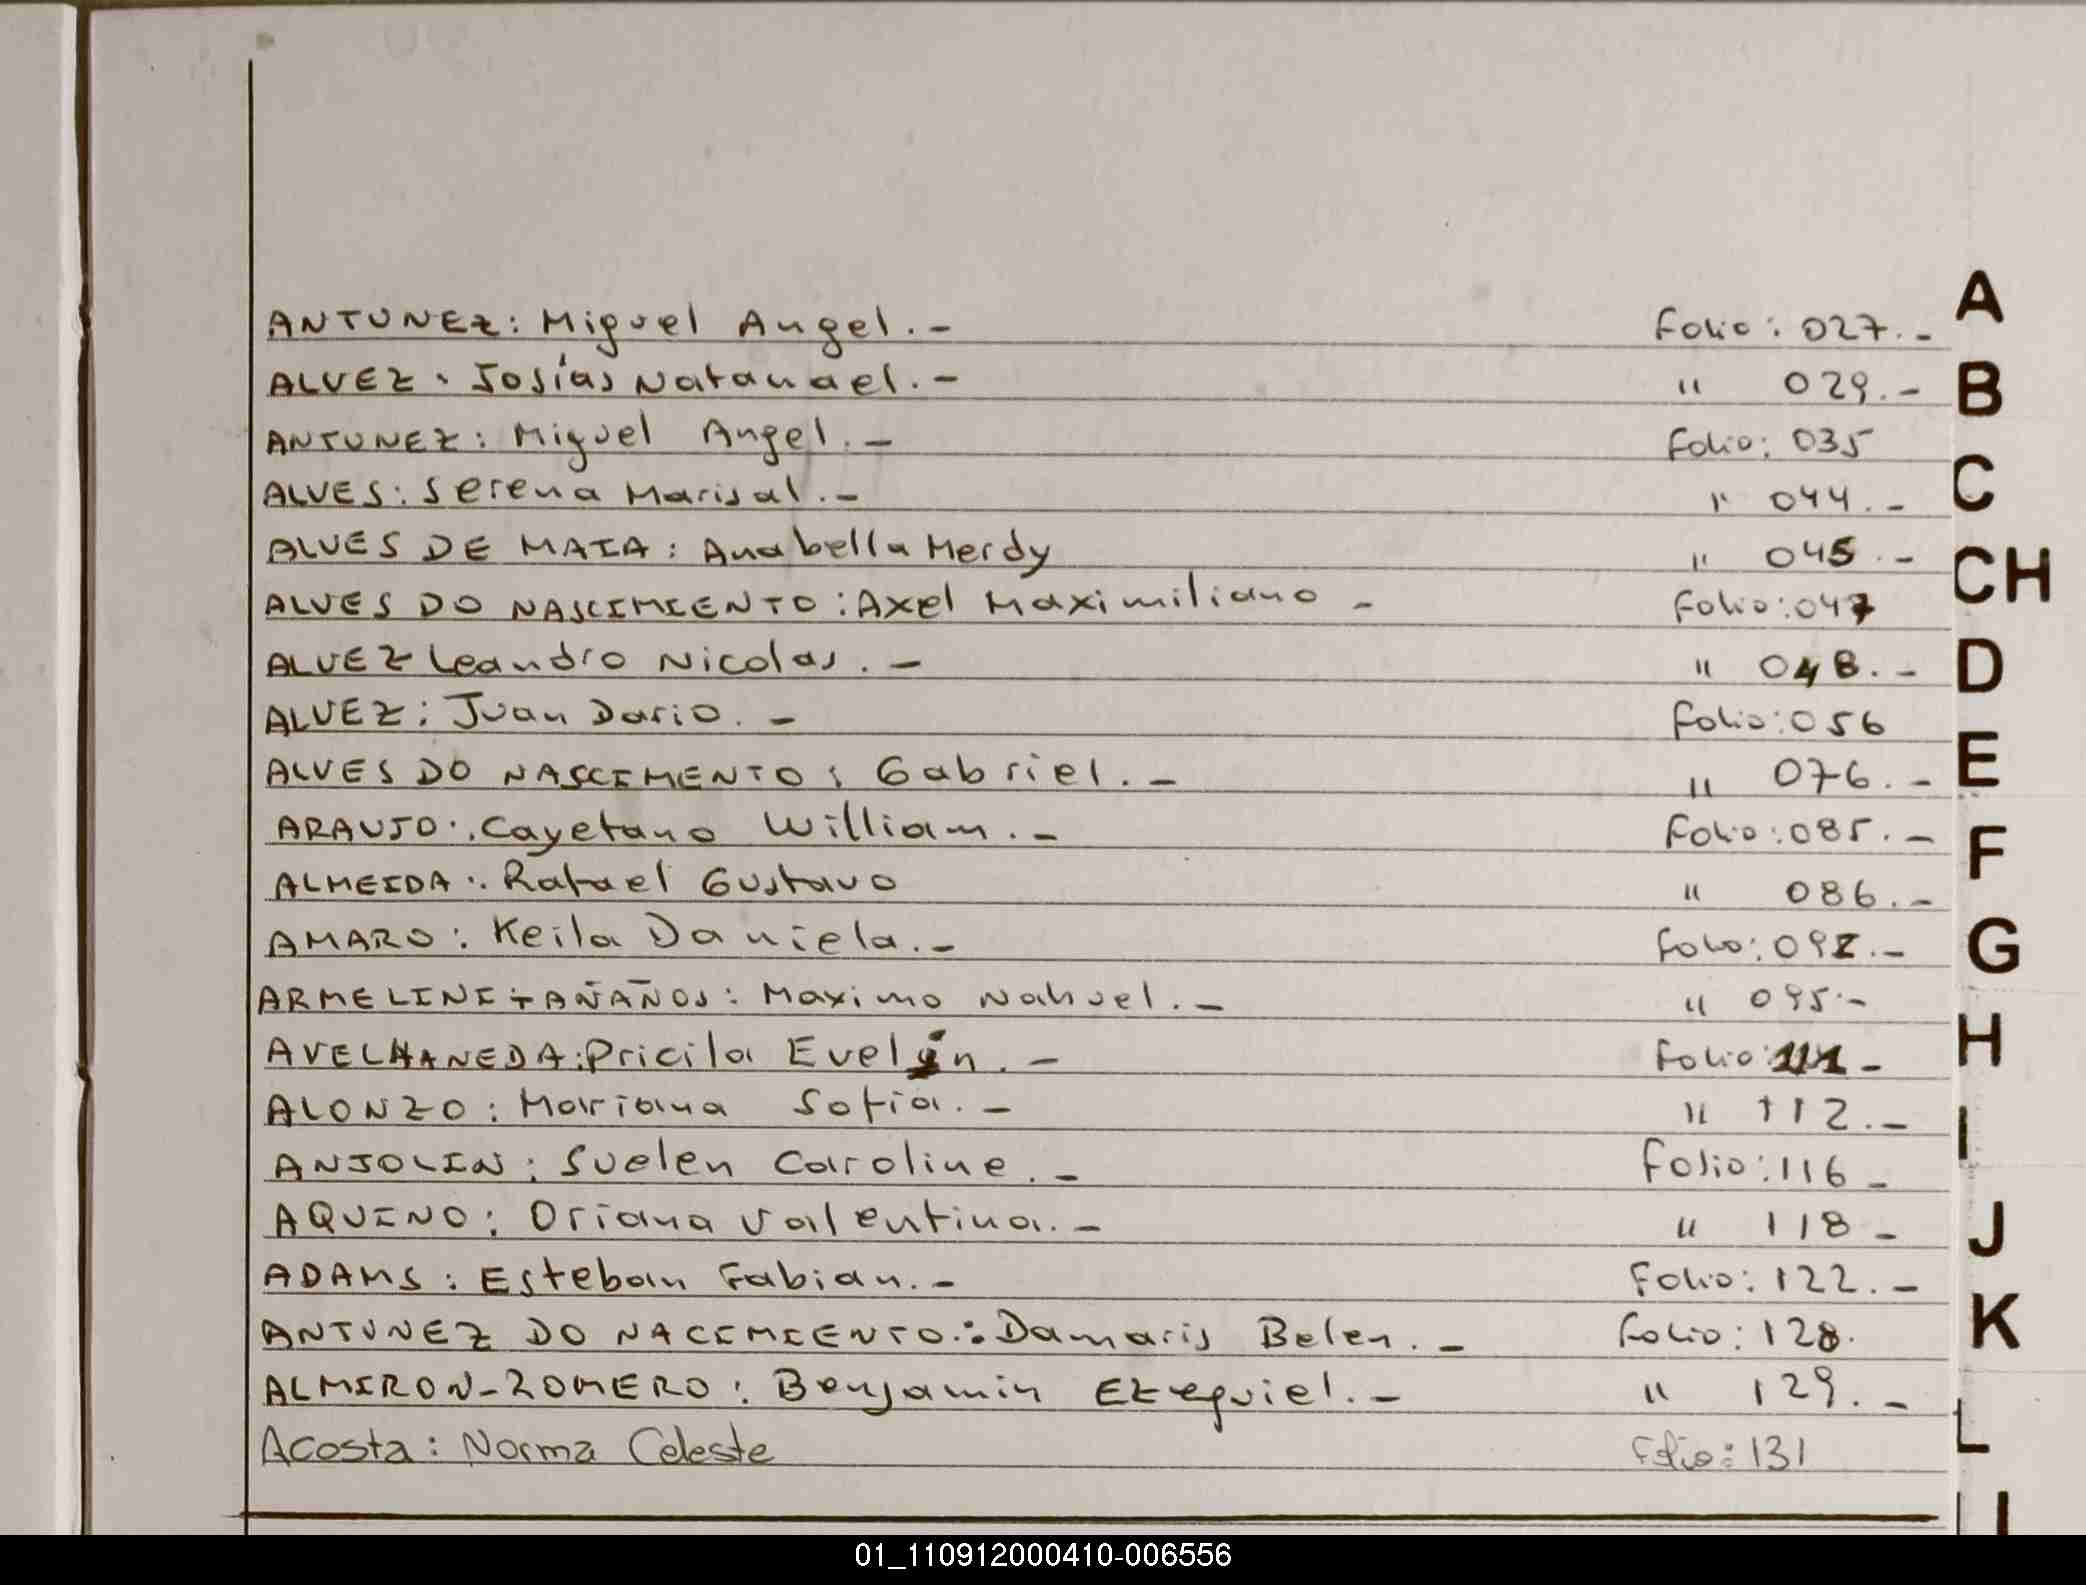 ANTUNEZ: Miguel Angel.- Folio: 027.-
ALVEZ. Josías Natanael.- " 029.-
ANTUNEZ: Miguel Angel.- Folio: 035
ALVES: Serena Marisal.- " 044.-
ALVES DE MAIA: Anabella Merdy " 045.-
ALVES DO NASCIMIENTO: Axel Maximiliano - Folio: 047
ALVEZ Leandro Nicolas.- " 048.-
ALVEZ: Juan Dario.- Folio: 056
ALVES DO NASCIMENTO: Gabriel.- " 076.-
ARAUJO: Cayetano William.- Folio: 085.-
ALMEIDA: Rafael Gustavo " 086.-
AMARO: Keila Daniela.- Folio: 092.-
ARMELINI TAÑAÑOS: Maximo Nahuel.- " 095.-
AVELHANEDA: Pricila Evelin.- Folio: 111 -
ALONZO: Mariana Sofia.- " 112.-
ANJOLIN: Suelen Caroline.- Folio: 116 -
AQUINO: Oriana Valentina.- " 118 -
ADAMS: Esteban Fabian.- Folio: 122.-
ANTUNEZ DO NACIMIENTO: Damaris Belen.- Folio: 128.
ALMIRON-ROMERO: Benjamin Ezequiel.- " 129.-
Acosta: Norma Celeste Folio: 131
A
B
C
CH
D
E
F
G
H
I
J
K
L
01_110912000410-006556